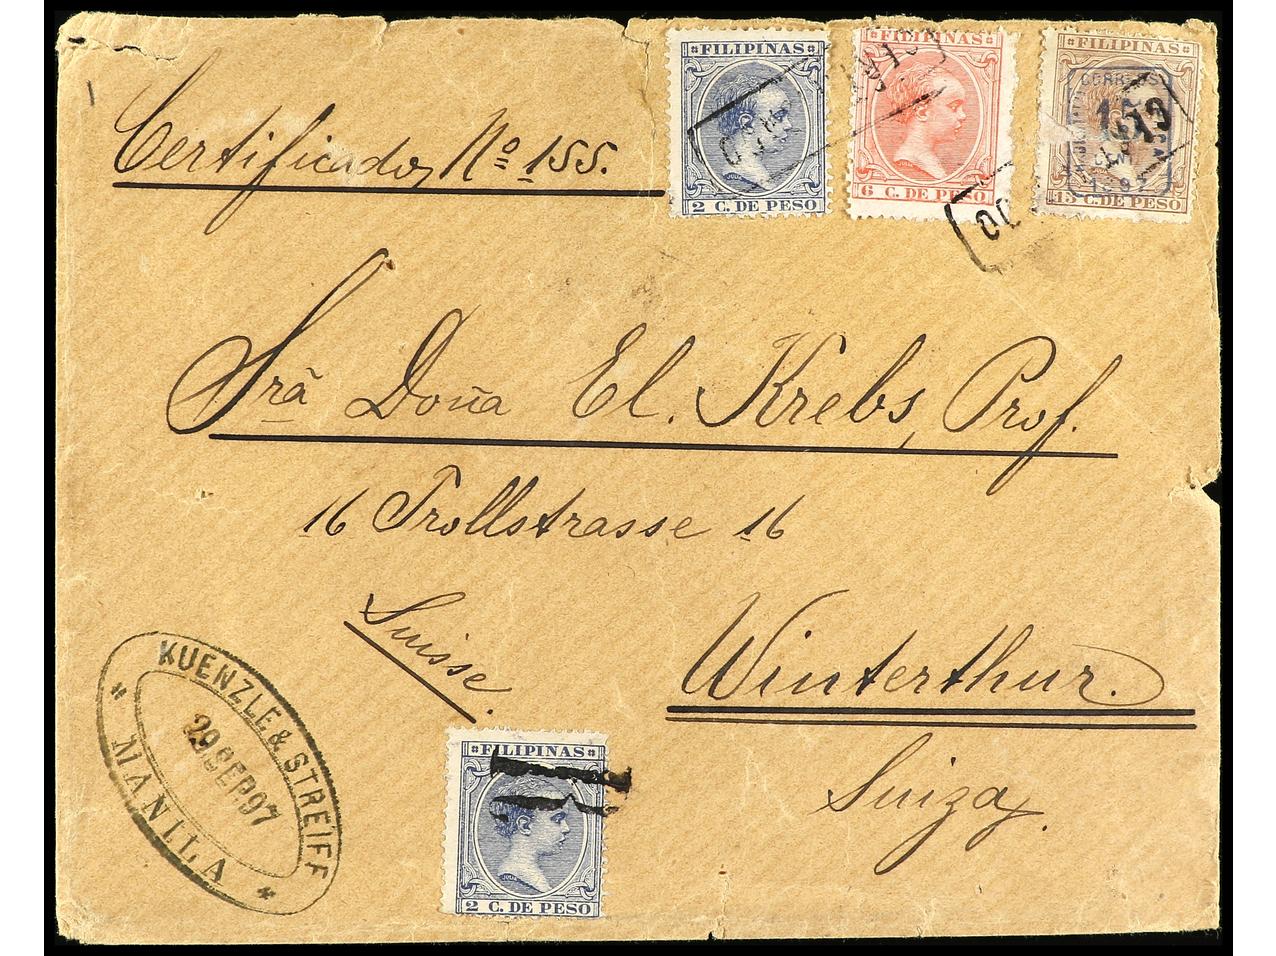 Certificado, Nº 155.
FILIPINAS
2 C. DE PESO
FILIPINAS
6 C. DE PESO
FILIPINAS
CORREOS
15
15 C. DE PESO
Srã Doña El. Krebs, Prof.
16 Trollstrasse 16
Suisse.
Winterthur.
Suiza.
KUENZLE & STREIFF
29 SEP. 97
* MANILA *
FILIPINAS
2 C. DE PESO